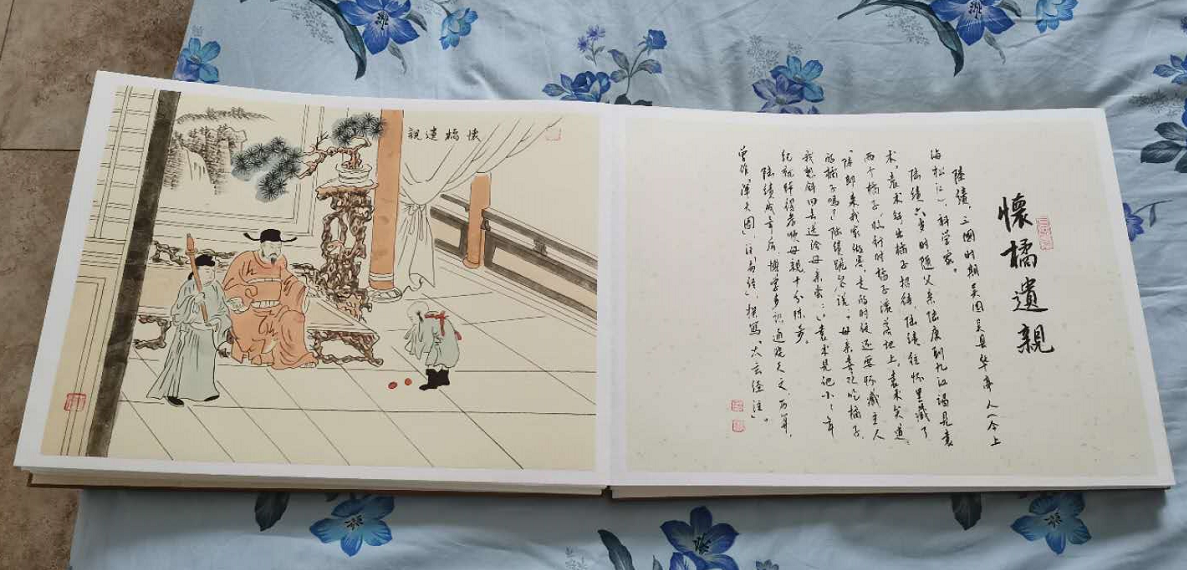 懷橘遺親
懷橘遺親
陸績，三國時期吳國吳县华亭人（今上
海松江），科学家。
陆绩六岁时，随父亲陆康到九江谒见袁
术，袁术拿出橘子招待，陆绩往怀里藏了
两个橘子。临行时，橘子滚落地上，袁术笑道：
“陆郎来我家做客，走的时候还要怀藏主人
的橘子吗？”陆绩跪答说：“母亲喜欢吃橘子，
我想拿回去送给母亲尝。”袁术见他小小年
纪就懂得孝顺母亲，十分惊奇。
陆绩成年后，博学多识，通晓天文、历算，
曾作《浑天图》，注《易经》，撰写《太玄经注》。